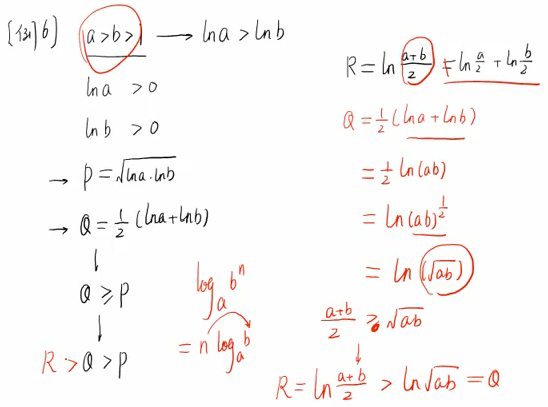 [例]6) a>b>1 → lna > lnb
lna > 0
lnb > 0
→ P = √lna·lnb
→ Q = 1/2 (lna+lnb)
↓
Q ≥ P
↓
R > Q > P
log_a b^n
= n log_a b
R = ln (a+b)/2 ≠ ln a/2 + ln b/2
Q = 1/2 (lna + lnb)
= 1/2 ln(ab)
= ln(ab)^1/2
= ln (√ab)
(a+b)/2 ≥ √ab
↓
R = ln (a+b)/2 > ln√ab = Q